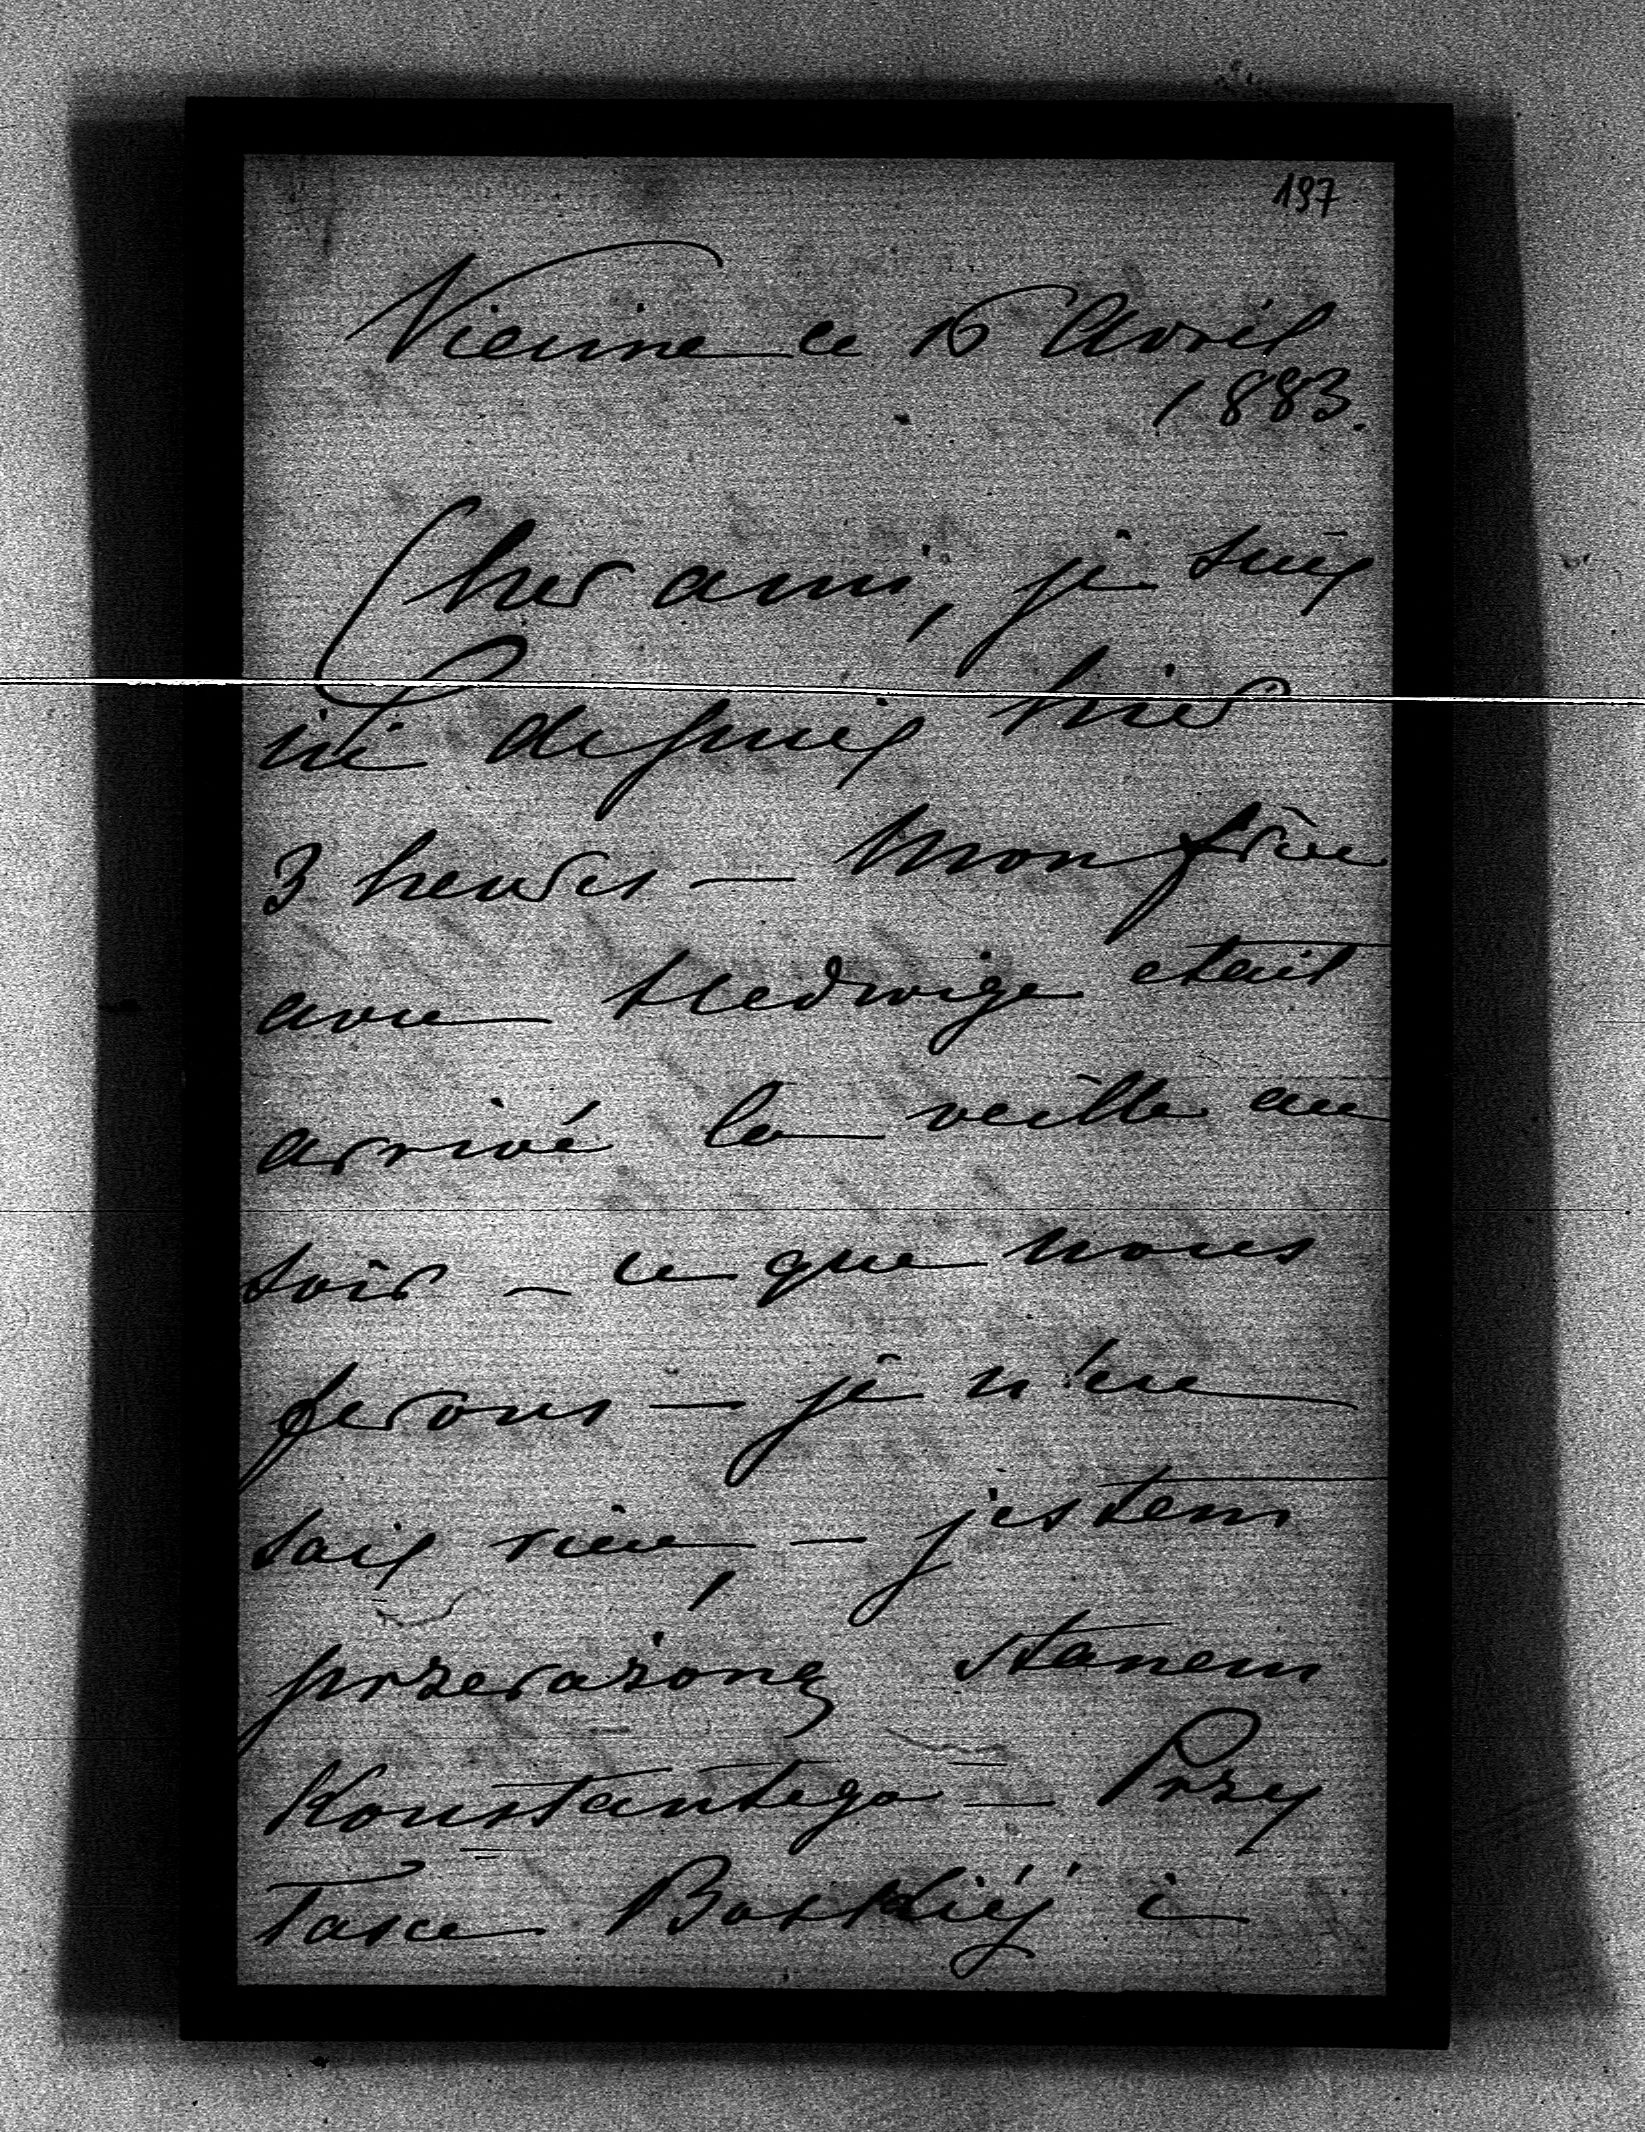 197
Vienne ce 16 Avril
1883.
Cher ami, je suis
ici depuis hier
3 heures — Mon frère
avec Hedwige etait
arrivé la veille au
soir — ce que nous
ferons — je n'en
sais rien, — jestem
przerażoną stanem
Konstantego — Przy
Łasce Boskiéj i